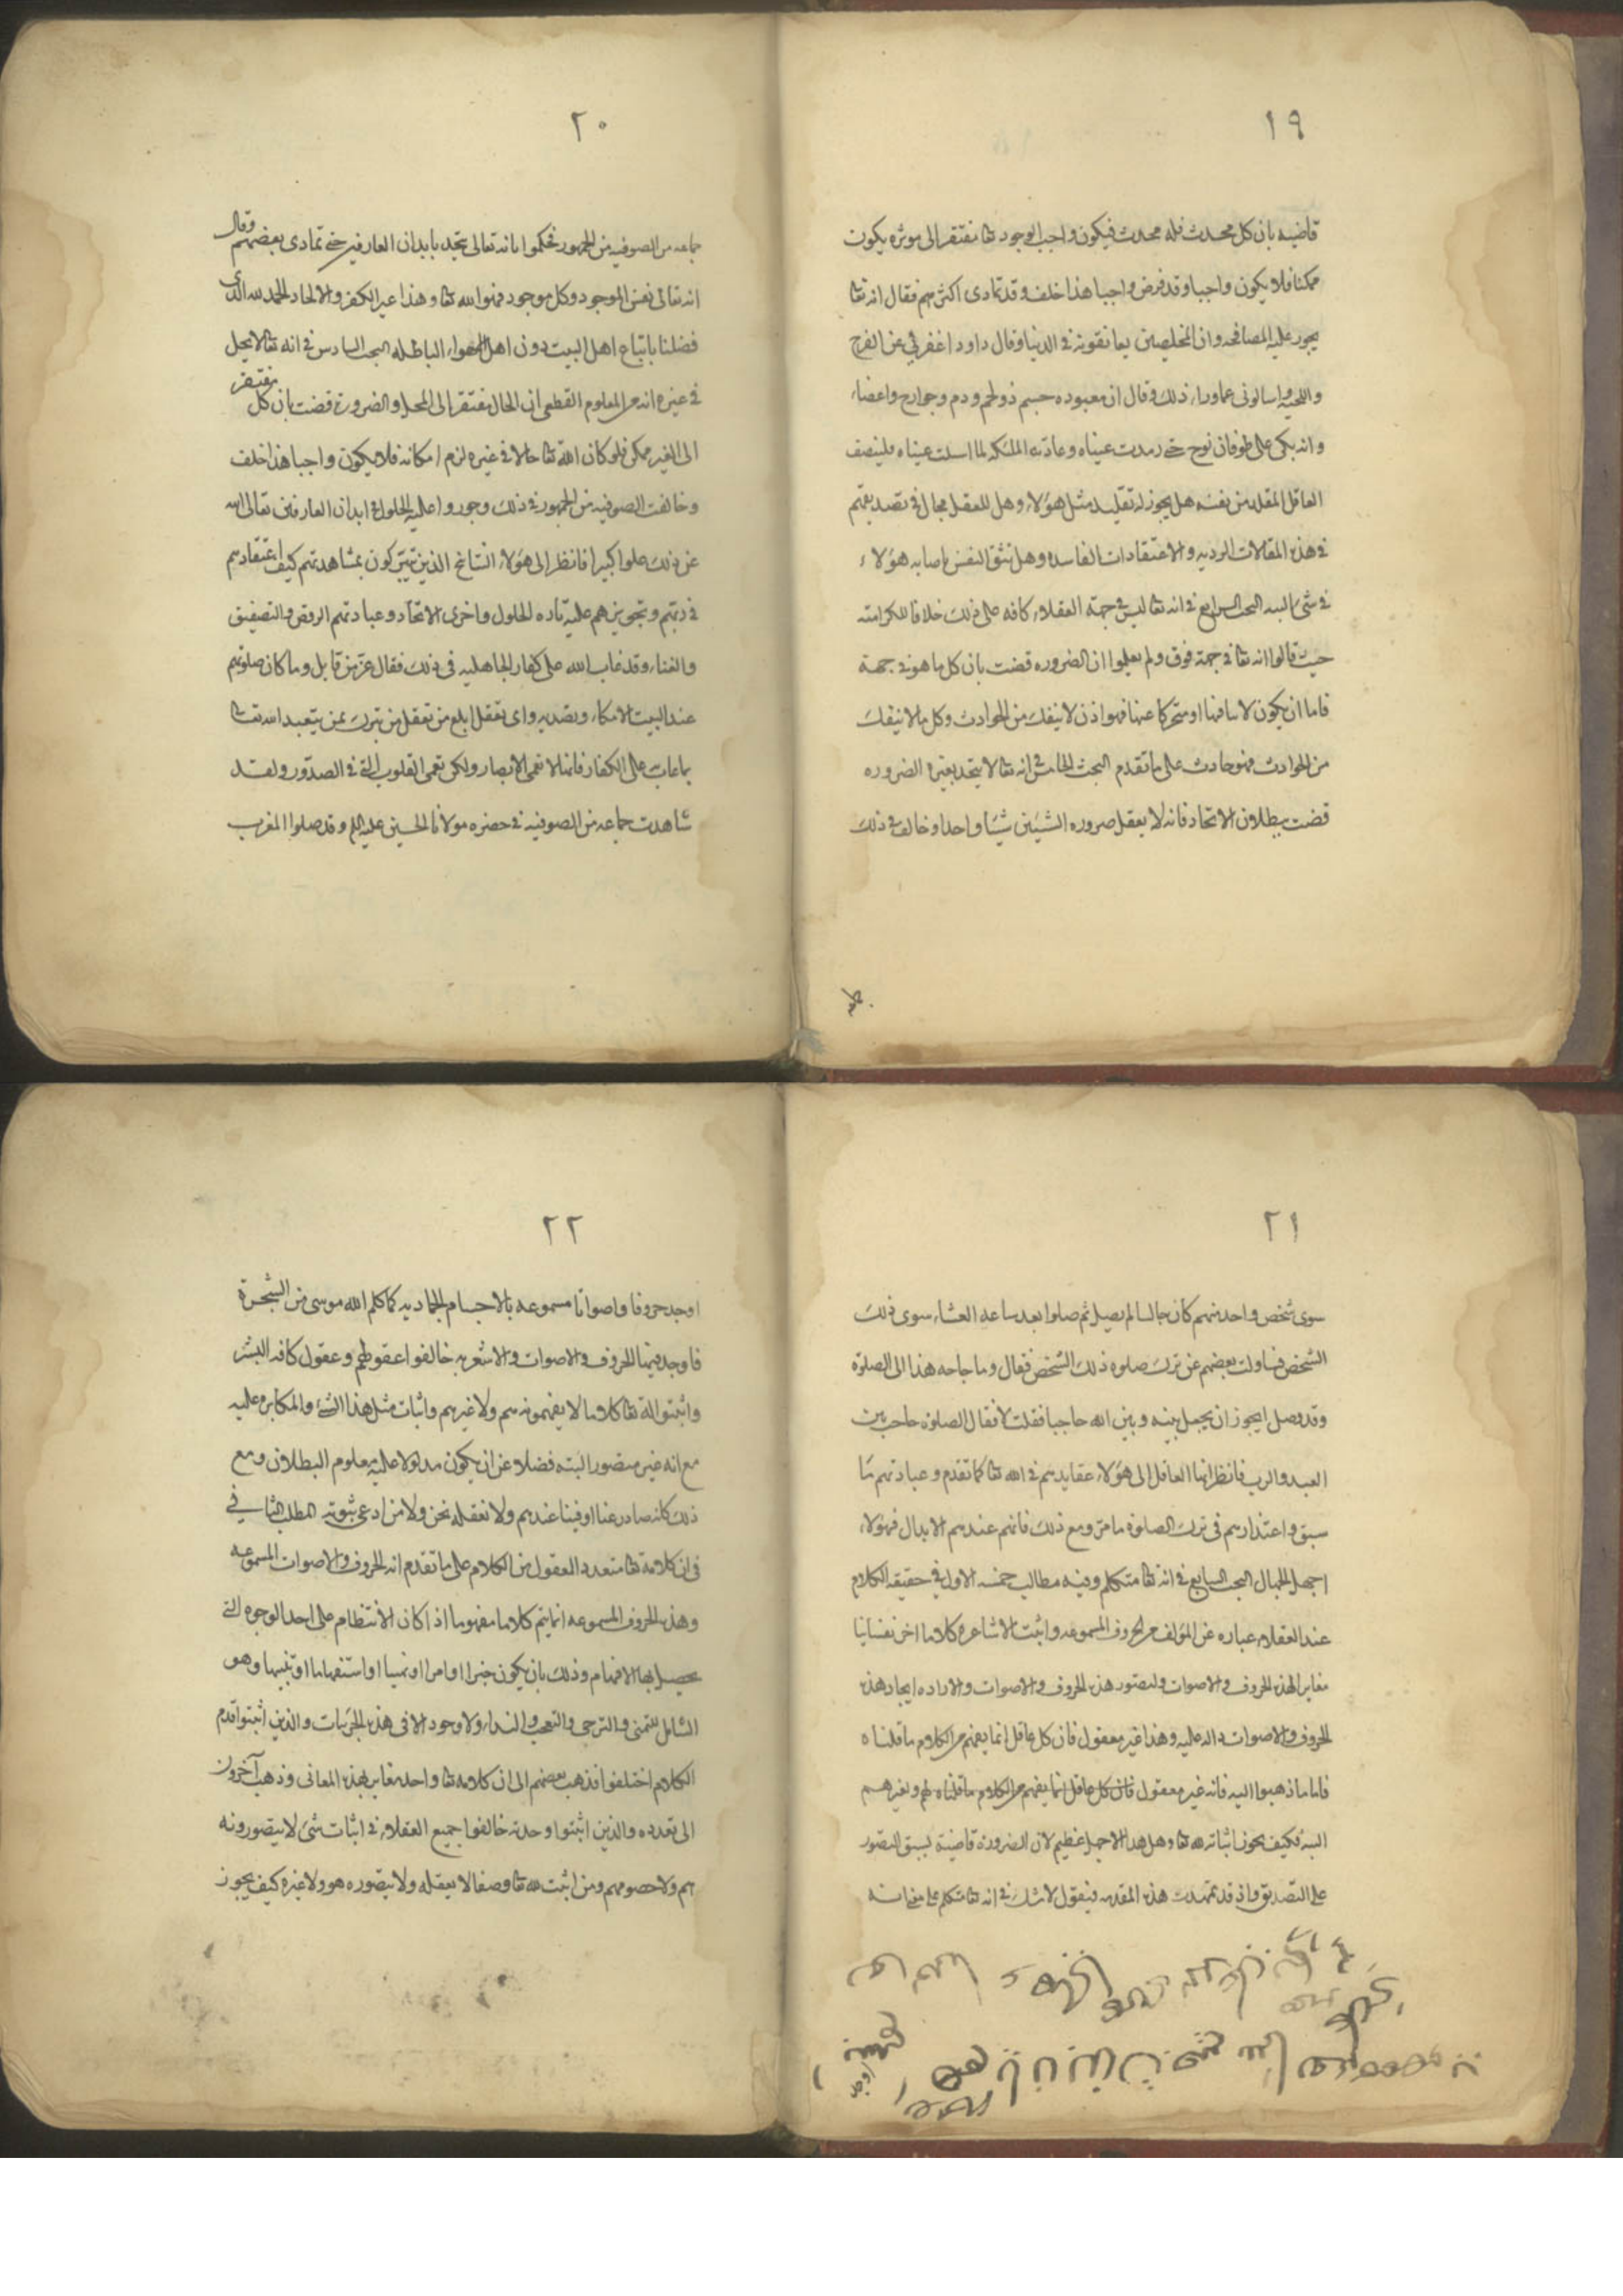 ١٩
قاضيه بان كل محدث فله محدث فيكون واجب الوجود تعا مفتقر الى موثره يكون
ممكنا فلا يكون واجبا وقد فرض واجبا هذا خلف وقد تمادى اكثرهم فقال انه تعا
يجوز عليه المصافحه وان المخلصين يعانقونه في الدنيا وقال داود اعفوني عن الفرج
واللحيه واسالونى عما وراء ذلك وقال ان معبوده جسم ذو لحم ودم وجوارح واعضاء
وانه بكى على طوفان نوح حتى رمدت عيناه وعادته الملئكه لما اسلت عيناه فلينصف
العاقل المقلد من نفسه هل يجوز له تقليد مثل هؤلاء وهل للعقل مجال في تصديقهم
في هذه المقالات الرديه والاعتقادات الفاسده وهل تثق النفس باصابه هؤلاء
في شئ البته البحث الرابع في انه تعا ليس في جهة العقلاء كافه على ذلك خلافا للكراميه
حيث قالوا انه تعا في جهة فوق ولم يعلموا ان الضروره قضت بان كل ما هو في جهة
فاما ان يكون لابثا فيها او متحركا عنها فهو اذن لا ينفك من الحوادث وكل ما لا ينفك
من الحوادث فهو حادث على ما تقدم البحث الخامس في انه تعا لا يتحد بغيره الضروره
قضت ببطلان الاتحاد فانه لا يعقل صيروره الشيئين شيئا واحدا وخالف في ذلك
٢٠
جماعه من الصوفيه من الجمهور فحكموا بانه تعالى يتحد بابدان العارفين حتى تمادى بعضهم وقال
انه تعالى نفس الموجود وكل موجود فهو الله تعا وهذا عين الكفر والالحاد الحمد لله الذى
فضلنا باتباع اهل البيت دون اهل الاهواء الباطله البحث السادس في انه تعا لا يحل
في غيره انه من المعلوم القطعي ان الحال مفتقر الى المحل والضرورة قضت بان كل مفتقر
الى الغير ممكن فلو كان الله تعا حالا في غيره لزم امكانه فلا يكون واجبا هذا خلف
وخالفت الصوفيه من الجمهور في ذلك وجوزوا عليه الحلول في ابدان العارفين تعالى الله
عن ذلك علوا كبيرا فانظر الى هؤلاء المشايخ الذين يتبركون بمشاهدتهم كيف اعتقادهم
في ربهم وتجويزهم عليه تاره الحلول واخرى الاتحاد وعبادتهم الرقص والتصفيق
والغناء وقد عاب الله على كفار الجاهليه في ذلك فقال عز من قايل وما كان صلوتهم
عند البيت الا مكاء وتصديه واى تغفل ابلغ من تغفل من يتبرك بمن يتعبد الله تعا
بما عاب على الكفار فانها لا تعمى الابصار ولكن تعمى القلوب التي في الصدور ولقد
شاهدت جماعه من الصوفيه في حضره مولانا الحسين عليه السلم وقد صلوا المغرب
٢١
سوى شخص واحد منهم كان جالسا لم يصل ثم صلوا بعد ساعه العشاء سوى ذلك
الشخص فساءلت بعضهم عن ترك صلوه ذلك الشخص فقال وما حاجه هذا الى الصلوة
وقد وصل ايجوز ان يجعل بينه وبين الله حاجبا فقلت لا فقال الصلوة حاجب بين
العبد والرب فانظر ايها العاقل الى هؤلاء عقايدهم في الله تعا كما تقدم وعبادتهم ما
سبق واعتذارهم في ترك الصلوة ما مر ومع ذلك فانهم عندهم الابدال فهؤلاء
اجهل الجهال البحث السابع في انه تعا متكلم وفيه مطالب خمسه الاول في حقيقه الكلام
عند العقلاء عباره عن المؤلف من الحروف المسموعه واثبت الاشاعره كلاما اخر نفسانيا
مغاير الهذه الحروف والاصوات وليتصور هذه الحروف والاصوات والاراده ايجاد هذه
الحروف والاصوات داله عليه وهذا غير معقول فان كل عاقل انما يفهم من الكلام ما قلناه
فاما ما ذهبوا اليه فانه غير معقول فان كل عاقل انما يفهم من الكلام ما قلناه لهم ولغيرهم
البته فكيف يجوز اثباته لله تعا وهل هذا الا جهل عظيم لان الضرورة قاضية بسبق التصور
على التصديق واذ قد تمهدت هذه المقدمه فنقول لا شك في انه تعا متكلم على معنى انه
٢٢
اوجد حروفا واصواتا مسموعه بالاجسام الجماديه كما كلم الله موسى من الشجرة
فاوجد فيها الحروف والاصوات والاشعريه خالفوا عقولهم وعقول كافه البشر
واثبتوا له تعا كلاما لا يفهمونه هم ولا غيرهم واثبات مثل هذا الشئ والمكابره عليه
مع انه غير متصور البته فضلا عن ان يكون مدلولا عليه معلوم البطلان ومع
ذلك كانه صادر عنا او فينا عندهم ولا نعقله نحن ولا من ادعى ثبوته المطلب الثانى في
في ان كلامه تعا متعدد العقول من الكلام على ما تقدم انه الحروف والاصوات المسموعه
وهذه الحروف المسموعه انما يتم كلاما مفهوما اذا كان الانتظام على احد الوجوه التي
يحصل بها الافهام وذلك بان يكون خبرا او امرا او نهيا او استفهاما او تنبيها وهو
الشامل للتمنى والترجى والتعجب والنداء ولا وجود الا في هذه الجزئيات والذين اثبتوا قدم
الكلام اختلفوا فذهب بعضهم الى ان كلامه تعا واحد مغاير لهذه المعانى وذهب آخرون
الى تعدده والذين اثبتوا وحدته خالفوا جميع العقلاء في اثبات شئ لا يتصورونه
هم ولا خصومهم ومن اثبت لله تعا وصفا لا يعقله ولا يتصوره هو ولا غيره كيف يجوز